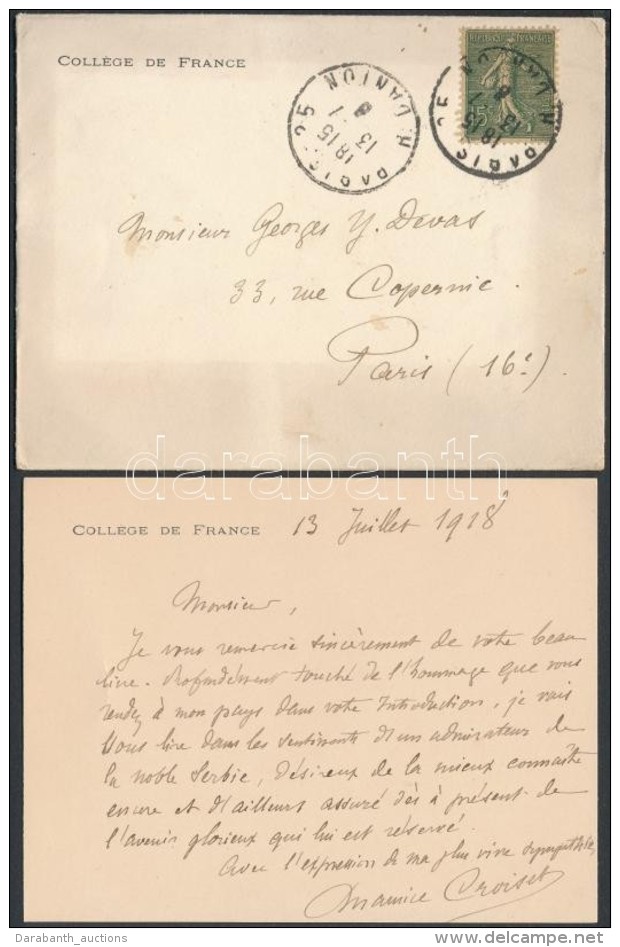 COLLÈGE DE FRANCE
RÉPUBLIQUE FRANÇAISE
15
PARIS 25 R. DANTON
18 15
13 7
PARIS 25 R. DANTON
18 15
13 7
Monsieur Georges Y. Devas
33, rue Copernic.
Paris (16e).
darabanth
COLLÈGE DE FRANCE
13 Juillet 1918
Monsieur,
Je vous remercie sincèrement de votre beau
livre. Profondément touché de l'hommage que vous
rendez à mon pays dans votre Introduction, je vais
vous lire dans les sentiments d'un admirateur de
la noble Serbie, désireux de la mieux connaître
encore et d'ailleurs assuré dès à présent de
l'avenir glorieux qui lui est réservé.
Avec l'expression de ma plus vive sympathie,
Maurice Croiset
Darabanth_auctions
www.delcampe.net